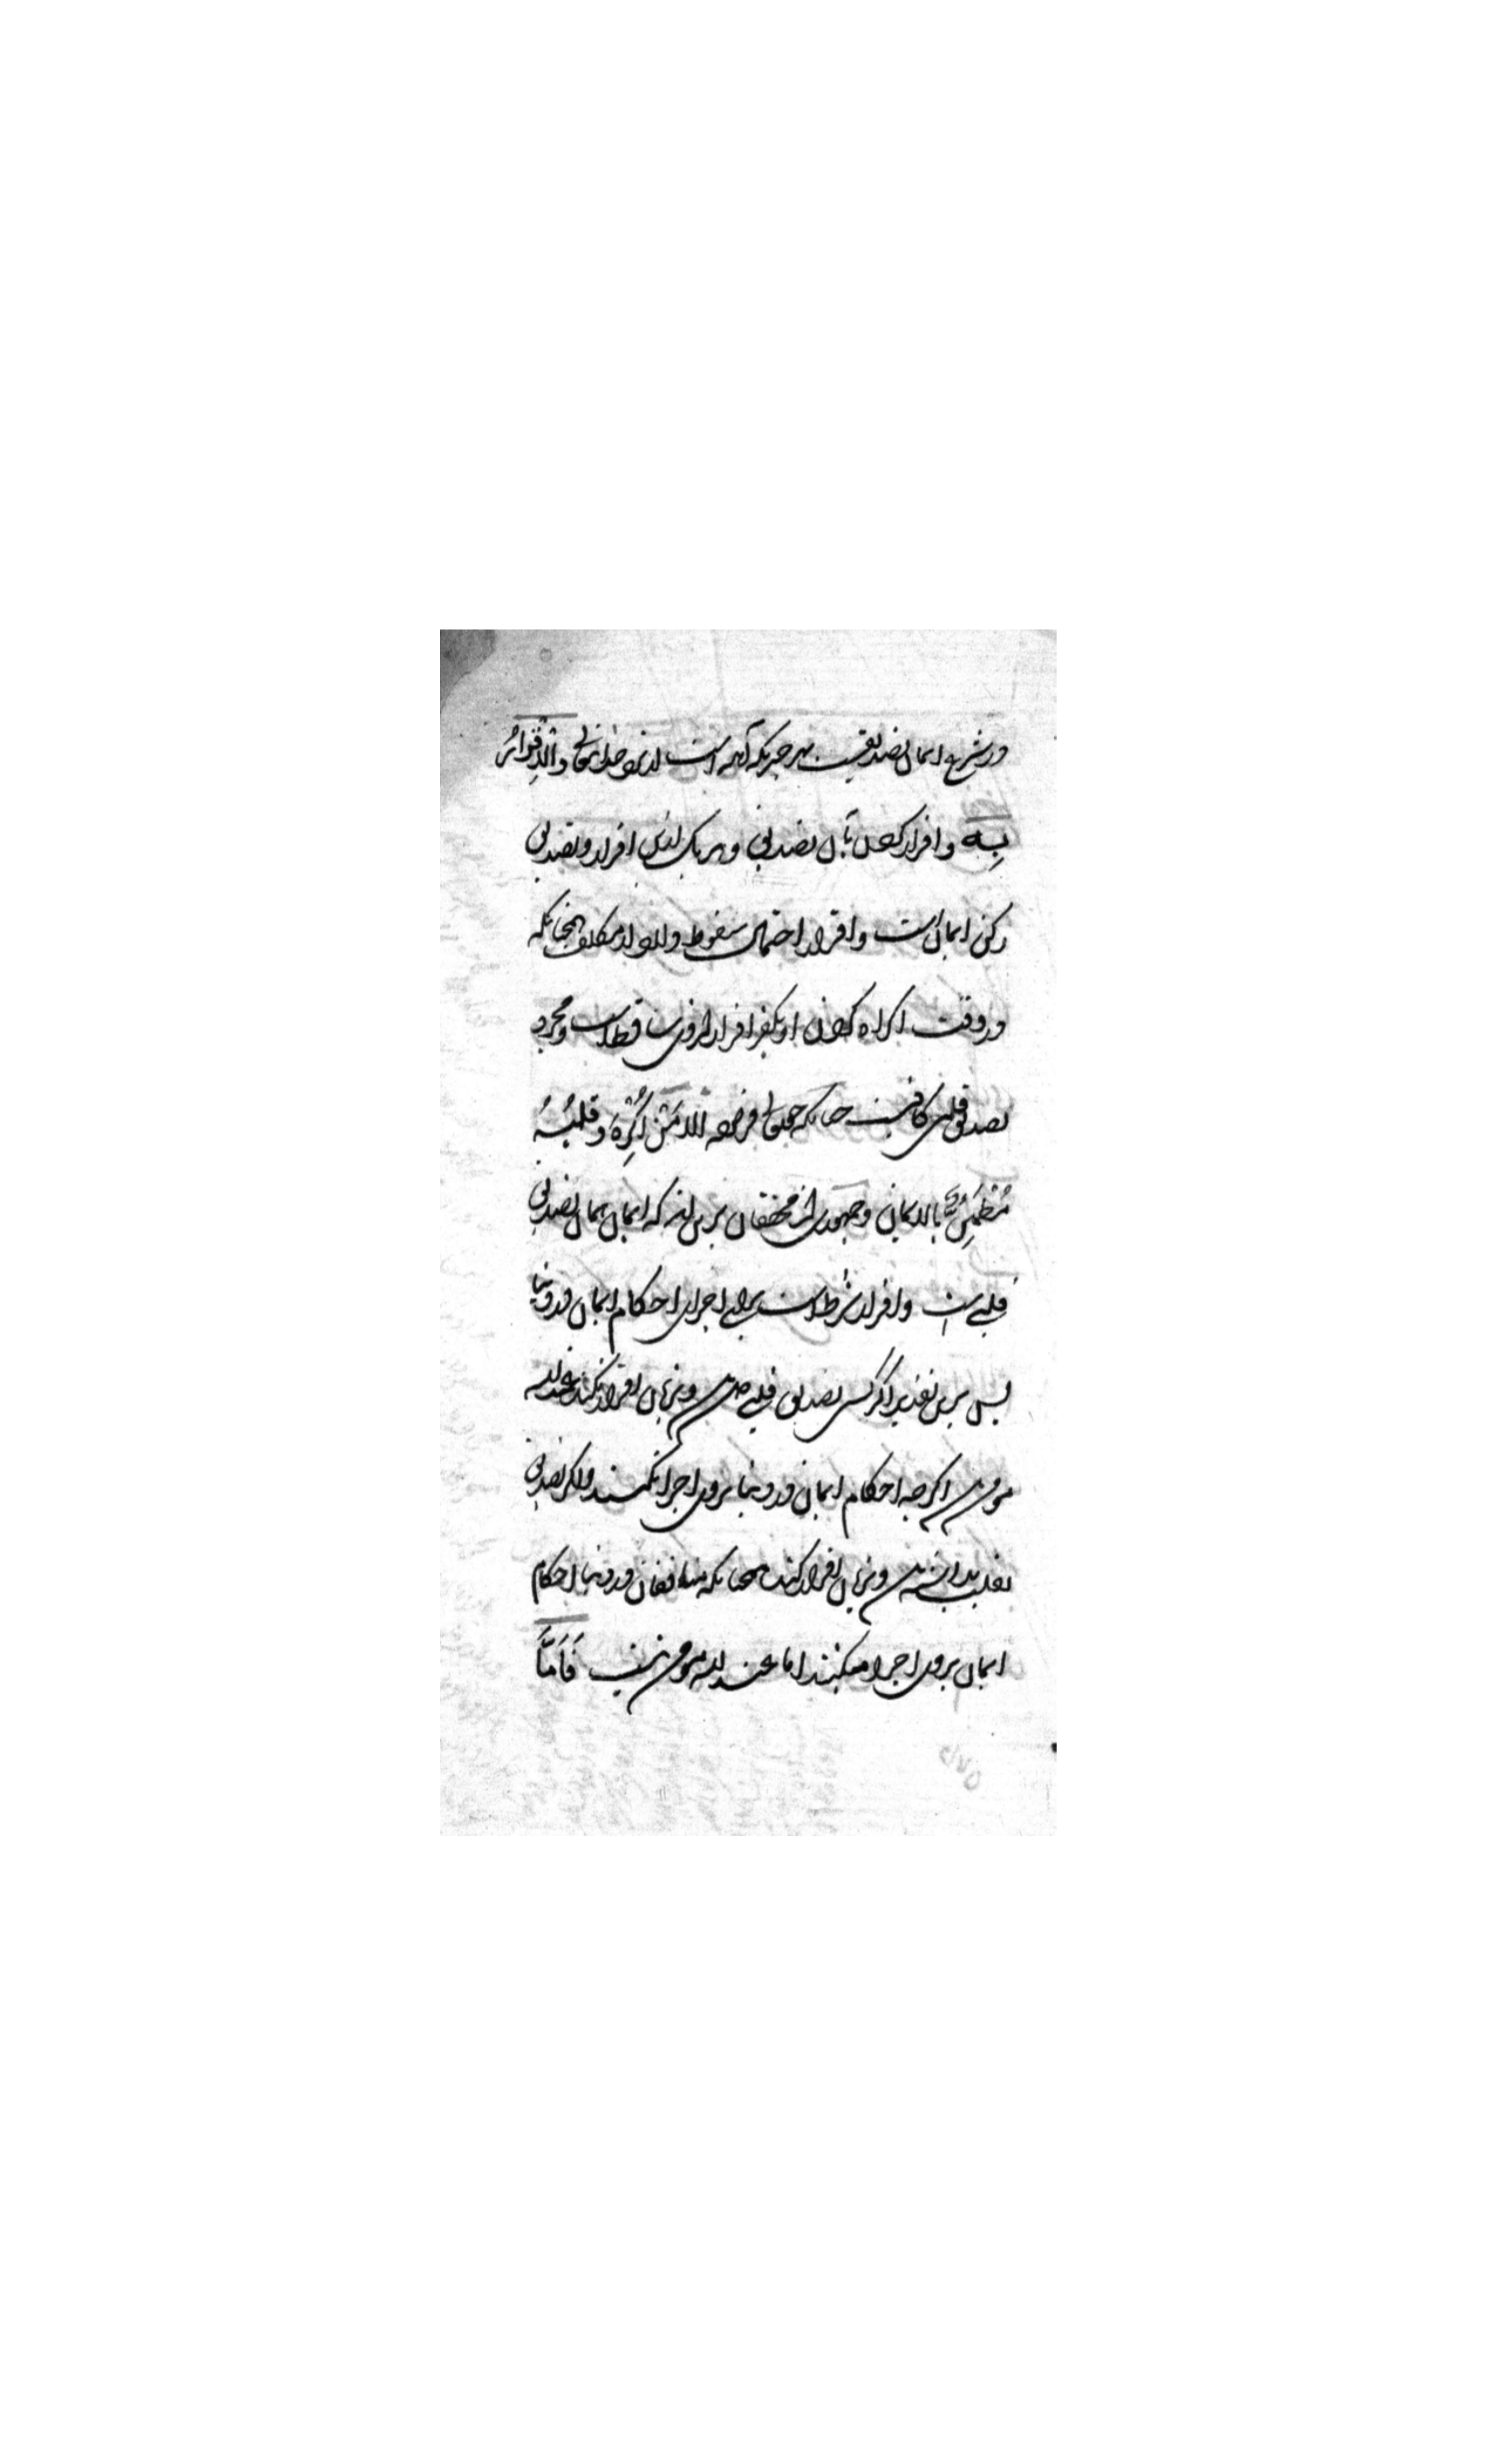 در شرع ایمان تصدیقست بهر چیزیکه آمده است از نزد خدایتعالی وَالْاِقْرَارُ
بِهِ و اقرار کردن بآن تصدیق و هر یک ازین اقرار و تصدیق
رکن ایمان است و اقرار احتمال سقوط دارد از مکلف همچنانکه
در وقت اکراه کردن او بکفر اقرار از وی ساقط است و مجرد
تصدیق قلبی کافیست چنانکه حق تعالی فرموده الا مَنْ اُکْرِهَ وَ قَلْبُهُ
مُطْمَئِنٌّ بالایمان و جمهور از محققان برین اند که ایمان همان تصدیق
قلبی است و اقرار شرط است برای اجرای احکام ایمان در دنیا
پس برین تقدیر اگر کسی تصدیق قلبی داشته باشد و بزبان اقرار نکند عند الله
مؤمن باشد اگرچه احکام ایمان در دنیا بروی اجرا نکنند و اگر تصدیق
بقلب نداشته باشد و بزبان اقرار کند همچنانکه منافقان در دنیا احکام
ایمان بروی اجرا میکنند اما عند الله مؤمن نیست فَاَمَّا